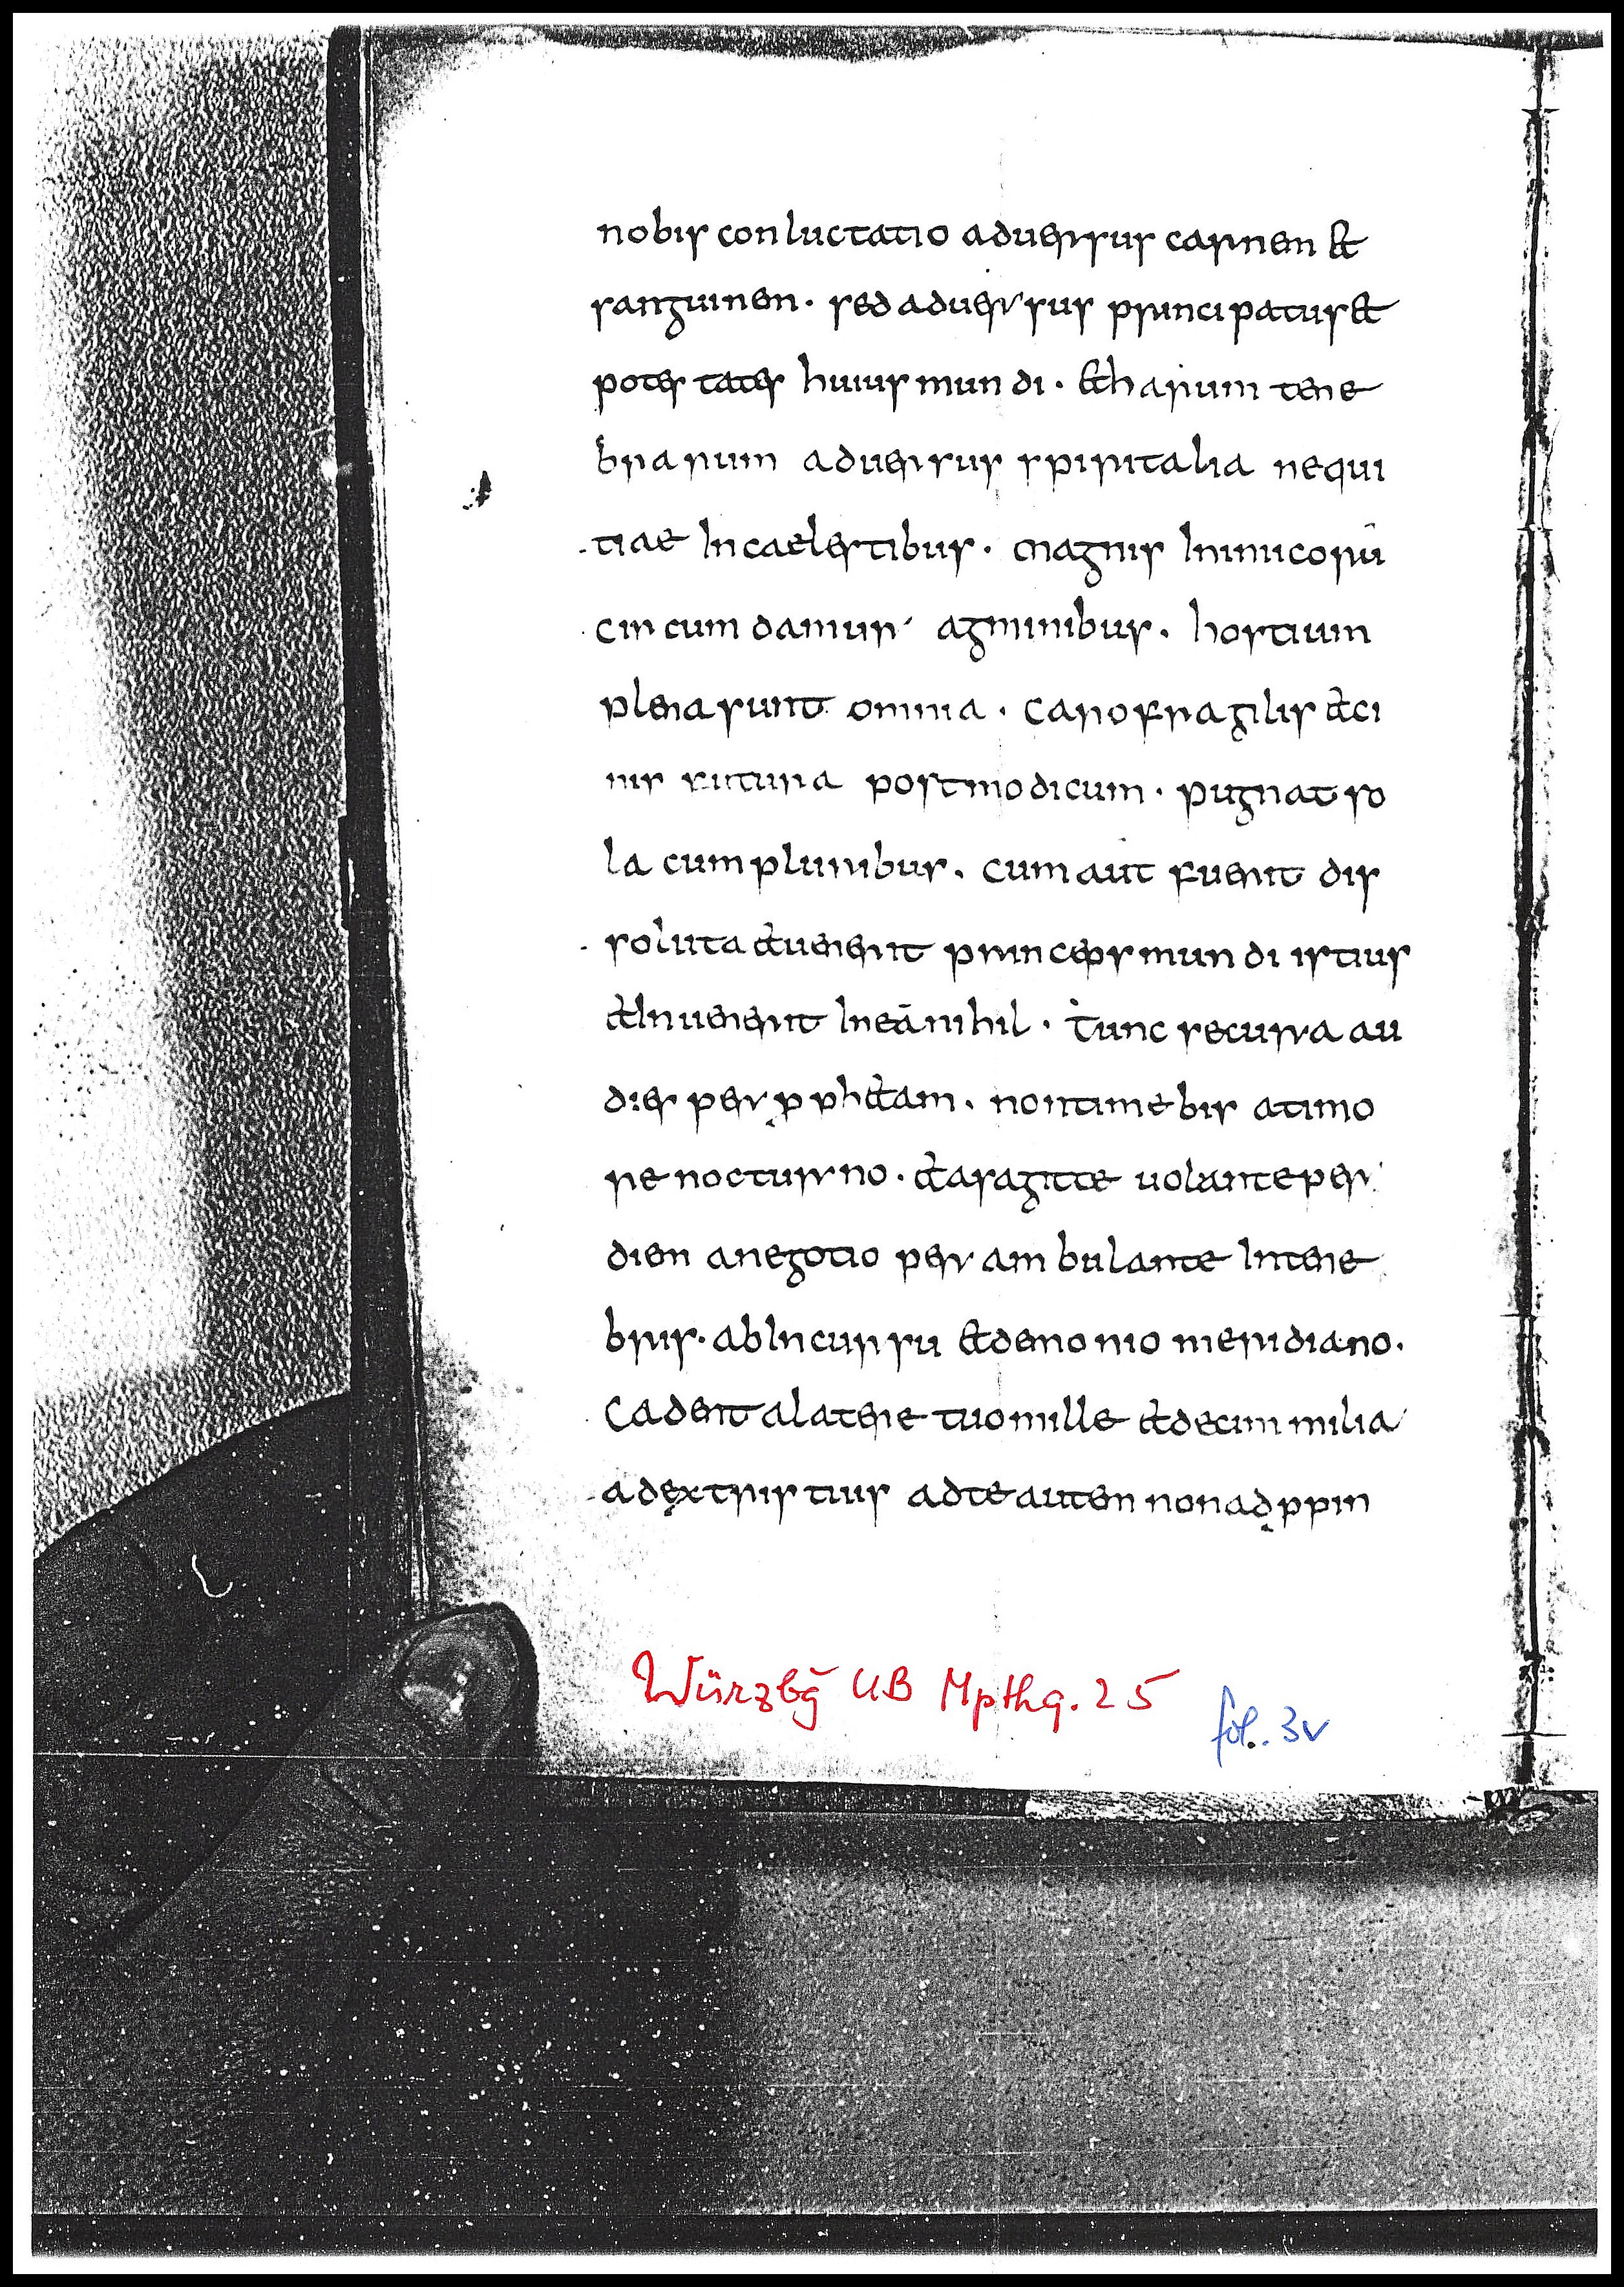 nobis conluctatio aduersus carnem &
sanguinem · sed aduersus principatus &
potestates huius mundi · & harum tene
brarum aduersus spiritalia nequi
tiae In caelestibus · magnis Inimicorū
circumdamur agminibus · hostium
plena sunt omnia · Caro fragilis & ci
nis futura post modicum · pugnat so
la cum pluribus · Cum aut fuerit dis
soluta & uenerit princeps mundi istius
& Inuenerit In eā nihil · Tunc secura au
dies per pph&am · non timebis a timo
re nocturno · & a sagitte uolante per
diem a negotio perambulante In tene
bris · ab Incursu & demonio meridiano ·
Cadent a latere tuo mille & decim milia
a dextris tius ad te autem non adppin
Würzbg UB Mpthq. 25
fol. 3v